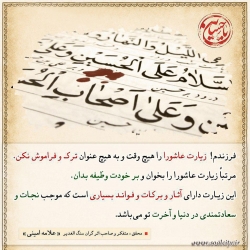 السَّلامُ عَلَى الْحُسَيْنِ وَعَلَى
وَعَلى اَصْحابِ الْحُ
فرزندم! زیارت عاشورا را هیچ وقت و به هیچ عنوان ترک و فراموش نکن.
مرتباً زیارت عاشورا را بخوان و بر خودت وظیفه بدان.
این زیارت دارای آثار و برکات و فوائد بسیاری است که موجب نجات و
سعادتمندی در دنیا و آخرت تو می‌باشد.
محقق، متفکر و صاحب اثر گران سنگ الغدیر » علامه امینی «